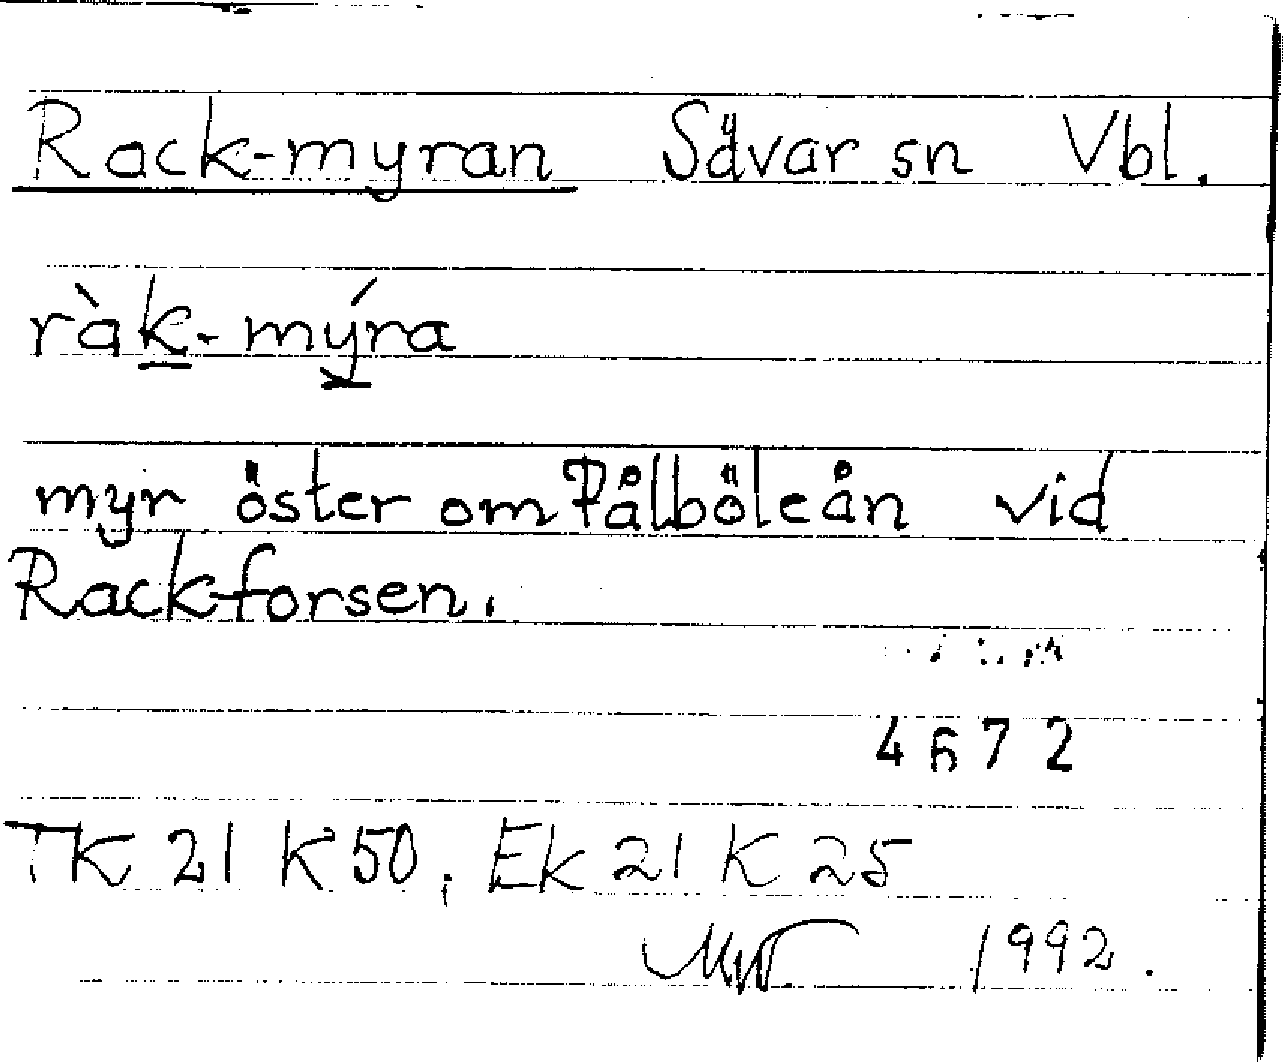 Rack-myran Sävar sn Vbl.
ràk-mýra
myr öster om Pålböleån vid
Rackforsen.
4672
TK 21 K 50, Ek 21 K 25
1992.